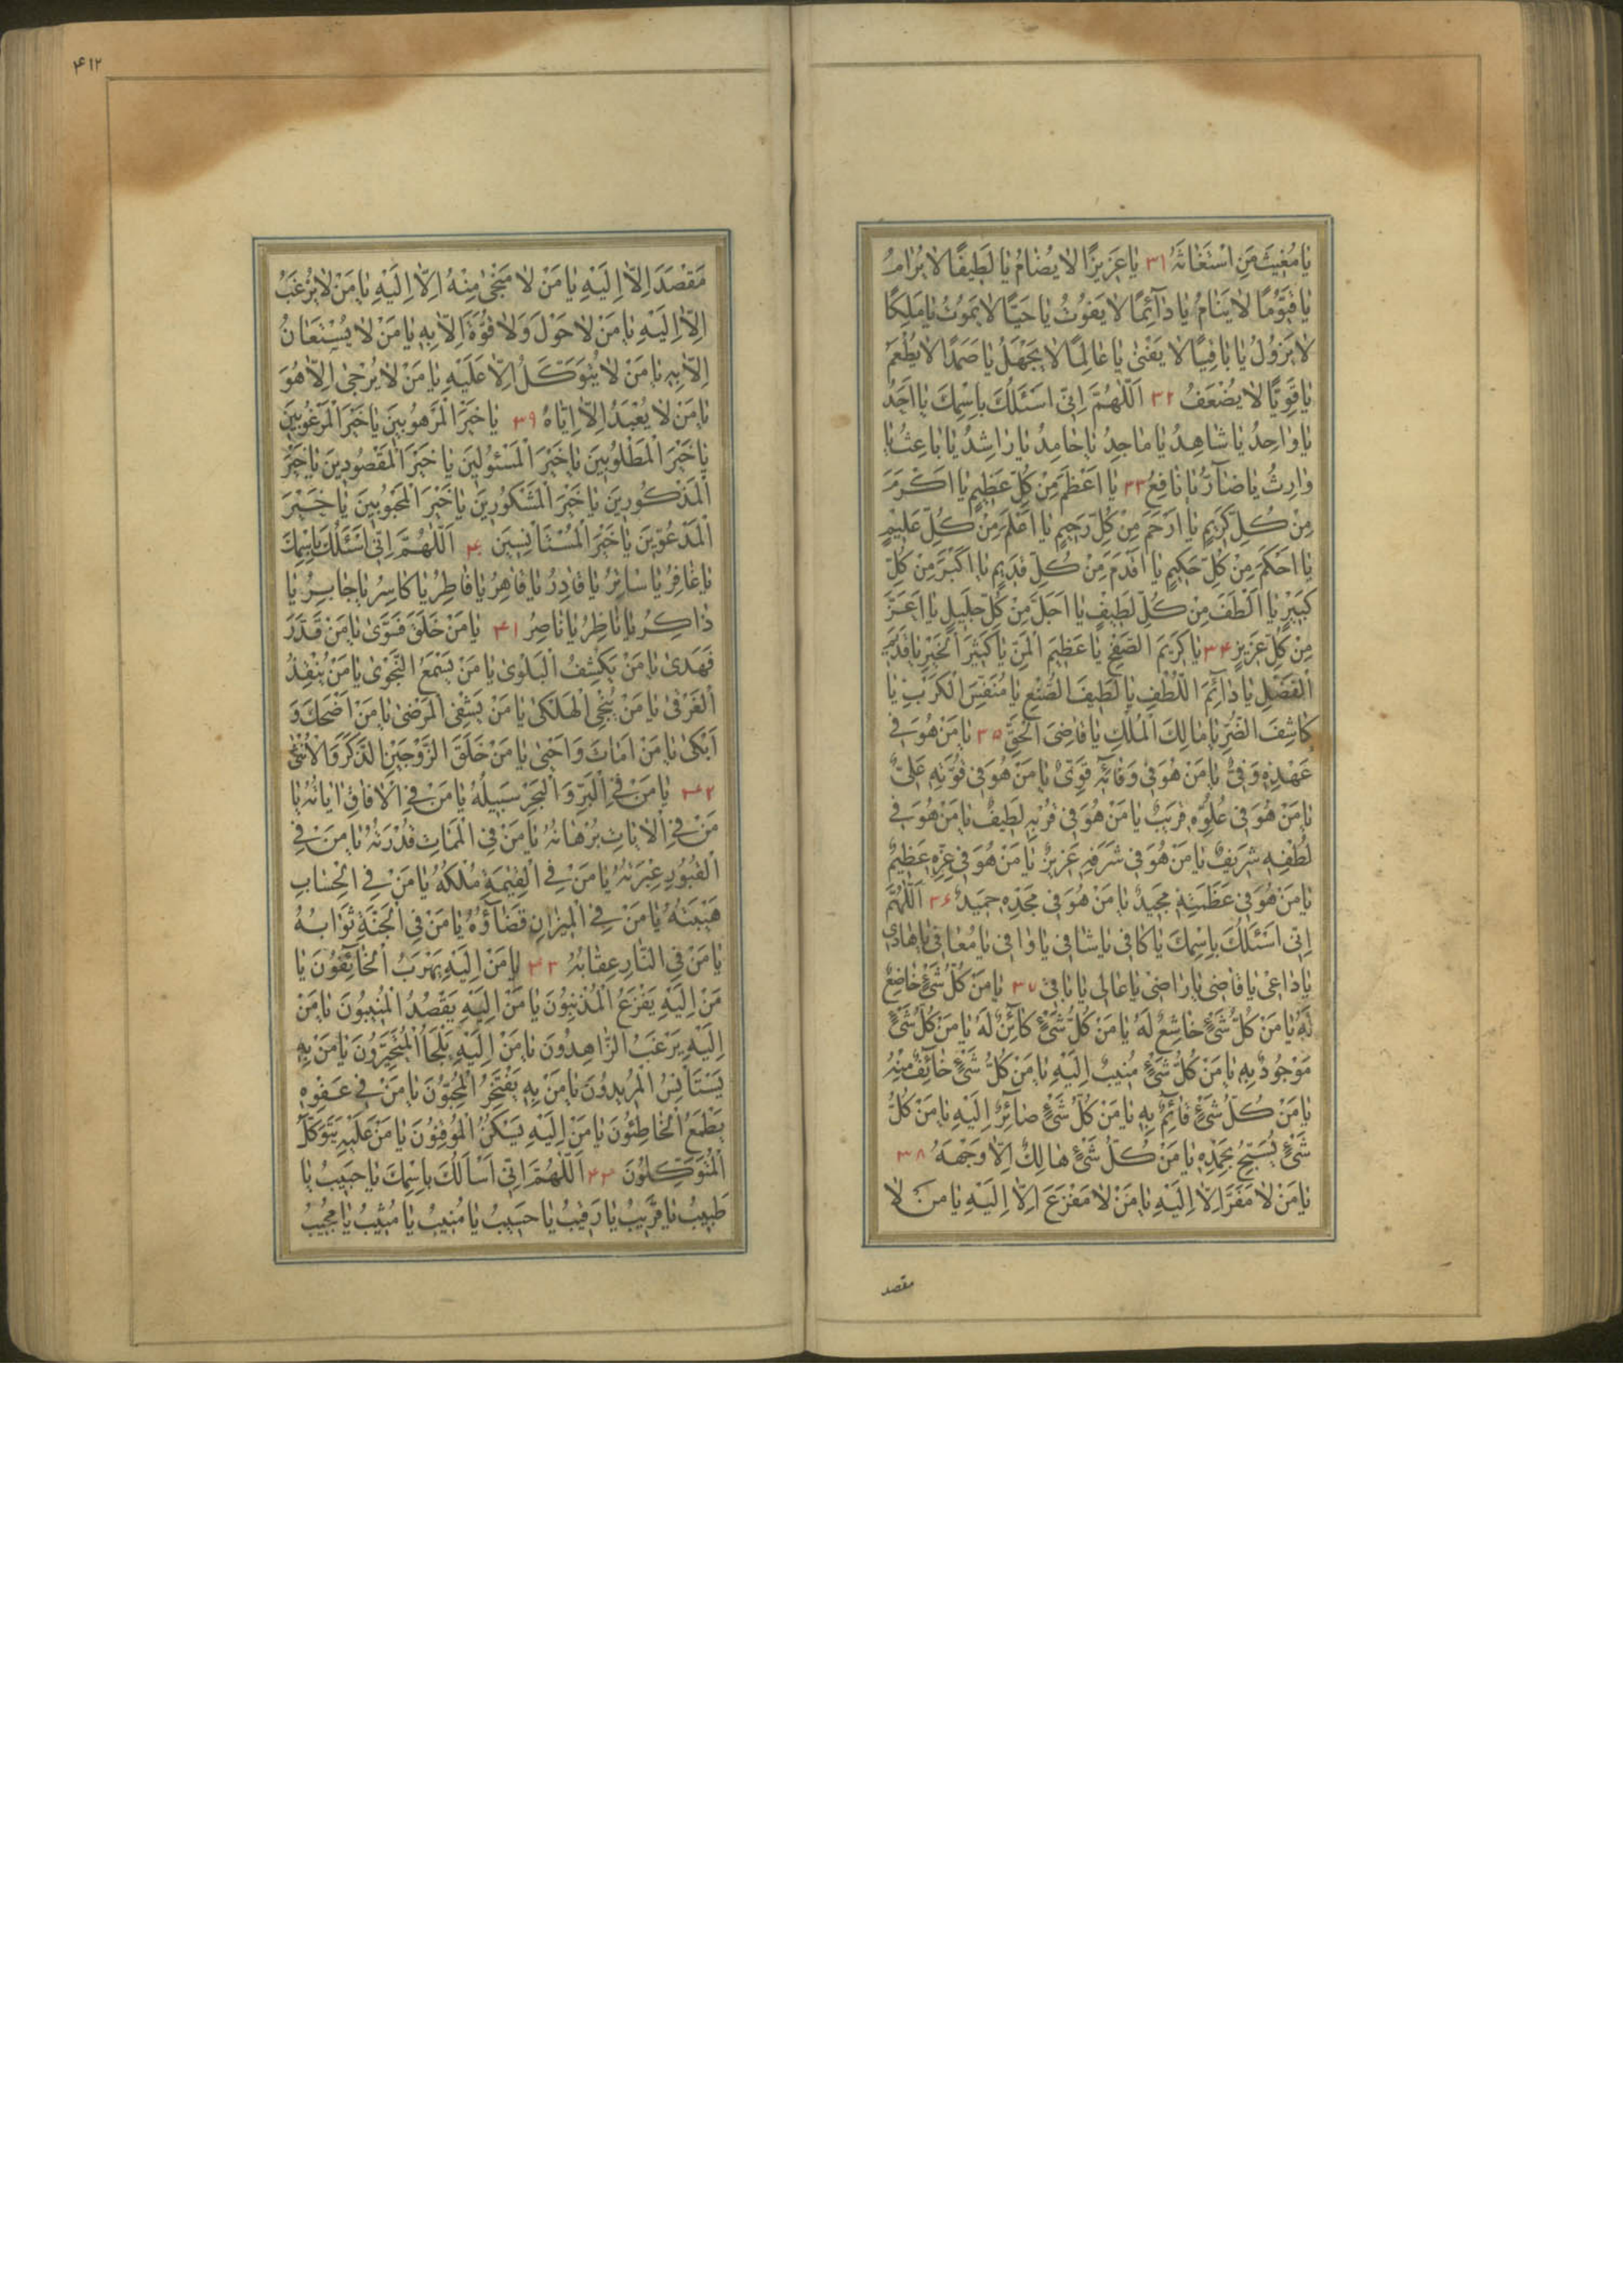 يا مُغيثَ مَنِ اسْتَغاثَهُ ٣١ يا عَزيزًا لا يُضامُ يا لَطيفًا لا يُرامُ
يا قَيُّومًا لا يَنامُ يا دآئِمًا لا يَفُوتُ يا حَيًّا لا يَمُوتُ يا مَلِكًا
لا يَزُولُ يا باقِيًا لا يَفْنى يا عالِمًا لا يَجْهَلُ يا صَمَدًا لا يُطْعَمُ
يا قَوِيًّا لا يَضْعُفُ ٣٢ اَللّهُمَّ اِنّى اَسْئَلُكَ بِاسْمِكَ يا اَحَدُ
يا واحِدُ يا شاهِدُ يا ماجِدُ يا حامِدُ يا راشِدُ يا باعِثُ يا
وارِثُ يا ضآرُّ يا نافِعُ ٣٣ يا اَعْظَمَ مِنْ كُلِّ عَظيمٍ يا اَكْرَمَ
مِنْ كُلِّ كَريمٍ يا اَرْحَمَ مِنْ كُلِّ رَحيمٍ يا اَعْلَمَ مِنْ كُلِّ عَليمٍ
يا اَحْكَمَ مِنْ كُلِّ حَكيمٍ يا اَقْدَمَ مِنْ كُلِّ قَديمٍ يا اَكْبَرَ مِنْ كُلِّ
كَبيرٍ يا اَلْطَفَ مِنْ كُلِّ لَطيفٍ يا اَجَلَّ مِنْ كُلِّ جَليلٍ يا اَعَزَّ
مِنْ كُلِّ عَزيزٍ ٣۴ يا كَريمَ الصَّفْحِ يا عَظيمَ الْمَنِّ يا كَثيرَ الْخَيْرِ يا قَديمَ
الْفَضْلِ يا دآئِمَ اللُّطْفِ يا لَطيفَ الصُّنْعِ يا مُنَفِّسَ الْكَرْبِ يا
كاشِفَ الضُّرِّ يا مالِكَ الْمُلْكِ يا قاضِىَ الْحَقِّ ٣۵ يا مَنْ هُوَ فى
عَهْدِهِ وَفِىٌّ يا مَنْ هُوَ فى وَفائِهِ قَوِىٌّ يا مَنْ هُوَ فى قُوَّتِهِ عَلِىٌّ
يا مَنْ هُوَ فى عُلُوِّهِ قَريبٌ يا مَنْ هُوَ فى قُرْبِهِ لَطيفٌ يا مَنْ هُوَ فى
لُطْفِهِ شَريفٌ يا مَنْ هُوَ فى شَرَفِهِ عَزيزٌ يا مَنْ هُوَ فى عِزِّهِ عَظيمٌ
يا مَنْ هُوَ فى عَظَمَتِهِ مَجيدٌ يا مَنْ هُوَ فى مَجْدِهِ حَميدٌ ٣۶ اَللّهُمَّ
اِنّى اَسْئَلُكَ بِاسْمِكَ يا كافى يا شافى يا وافى يا مُعافى يا هادى
يا داعى يا قاضى يا راضى يا عالى يا باقى ٣٧ يا مَنْ كُلُّ شَىْءٍ خاضِعٌ
لَهُ يا مَنْ كُلُّ شَىْءٍ خاشِعٌ لَهُ يا مَنْ كُلُّ شَىْءٍ كآئِنٌ لَهُ يا مَنْ كُلُّ شَىْءٍ
مَوْجُودٌ بِهِ يا مَنْ كُلُّ شَىْءٍ مُنيبٌ اِلَيْهِ يا مَنْ كُلُّ شَىْءٍ خآئِفٌ مِنْهُ
يا مَنْ كُلُّ شَىْءٍ قآئِمٌ بِهِ يا مَنْ كُلُّ شَىْءٍ صآئِرٌ اِلَيْهِ يا مَنْ كُلُّ
شَىْءٍ يُسَبِّحُ بِحَمْدِهِ يا مَنْ كُلُّ شَىْءٍ هالِكٌ اِلاّ وَجْهَهُ ٣٨
يا مَنْ لا مَفَرَّ اِلاّ اِلَيْهِ يا مَنْ لا مَفْزَعَ اِلاّ اِلَيْهِ يا مَنْ لا
مقصد
۴١٢
مَقْصَدَ اِلاّ اِلَيْهِ يا مَنْ لا مَنْجى مِنْهُ اِلاّ اِلَيْهِ يا مَنْ لا يُرْغَبُ
اِلاّ اِلَيْهِ يا مَنْ لا حَوْلَ وَلا قُوَّةَ اِلاّ بِهِ يا مَنْ لا يُسْتَعانُ
اِلاّ بِهِ يا مَنْ لا يُتَوَكَّلُ اِلاّ عَلَيْهِ يا مَنْ لا يُرْجى اِلاّ هُوَ
يا مَنْ لا يُعْبَدُ اِلاّ اِيّاهُ ٣٩ يا خَيْرَ الْمَرْهُوبينَ يا خَيْرَ الْمَرْغُوبينَ
يا خَيْرَ الْمَطْلُوبينَ يا خَيْرَ الْمَسْئُولينَ يا خَيْرَ الْمَقْصُودينَ يا خَيْرَ
الْمَذْكُورينَ يا خَيْرَ الْمَشْكُورينَ يا خَيْرَ الْمَحْبُوبينَ يا خَيْرَ
الْمَدْعُوّينَ يا خَيْرَ الْمُسْتَأْنِسينَ ۴٠ اَللّهُمَّ اِنّى اَسْئَلُكَ بِاسْمِكَ
يا غافِرُ يا ساتِرُ يا قادِرُ يا قاهِرُ يا فاطِرُ يا كاسِرُ يا جابِرُ يا
ذاكِرُ يا ناظِرُ يا ناصِرُ ۴١ يا مَنْ خَلَقَ فَسَوّى يا مَنْ قَدَّرَ
فَهَدى يا مَنْ يَكْشِفُ الْبَلْوى يا مَنْ يَسْمَعُ النَّجْوى يا مَنْ يُنْقِذُ
الْغَرْقى يا مَنْ يُنْجِى الْهَلْكى يا مَنْ يَشْفِى الْمَرْضى يا مَنْ اَضْحَكَ وَ
اَبْكى يا مَنْ اَماتَ وَاَحْيى يا مَنْ خَلَقَ الزَّوْجَيْنِ الذَّكَرَ وَالْاُنْثى
۴٢ يا مَنْ فِى الْبَرِّ وَالْبَحْرِ سَبيلُهُ يا مَنْ فِى الْافاقِ اياتُهُ يا
مَنْ فِى الْاياتِ بُرْهانُهُ يا مَنْ فِى الْمَماتِ قُدْرَتُهُ يا مَنْ فِى
الْقُبُورِ عِبْرَتُهُ يا مَنْ فِى الْقِيمَةِ مُلْكُهُ يا مَنْ فِى الْحِسابِ
هَيْبَتُهُ يا مَنْ فِى الْميزانِ قَضآؤُهُ يا مَنْ فِى الْجَنَّةِ ثَوابُهُ
يا مَنْ فِى النّارِ عِقابُهُ ۴٣ يا مَنْ اِلَيْهِ يَهْرَبُ الْخآئِفُونَ يا
مَنْ اِلَيْهِ يَفْزَعُ الْمُذْنِبُونَ يا مَنْ اِلَيْهِ يَقْصُدُ الْمُنيبُونَ يا مَنْ
اِلَيْهِ يَرْغَبُ الزّاهِدُونَ يا مَنْ اِلَيْهِ يَلْجَأُ الْمُتَحَيِّرُونَ يا مَنْ بِهِ
يَسْتَأْنِسُ الْمُريدُونَ يا مَنْ بِهِ يَفْتَخِرُ الْمُحِبُّونَ يا مَنْ فى عَفْوِهِ
يَطْمَعُ الْخاطِئُونَ يا مَنْ اِلَيْهِ يَسْكُنُ الْمُوقِنُونَ يا مَنْ عَلَيْهِ يَتَوَكَّلُ
الْمُتَوَكِّلُونَ ۴۴ اَللّهُمَّ اِنّى اَسْاَلُكَ بِاسْمِكَ يا حَبيبُ يا
طَبيبُ يا قَريبُ يا رَقيبُ يا حَسيبُ يا مُنيبُ يا مُثيبُ يا مُجيبُ